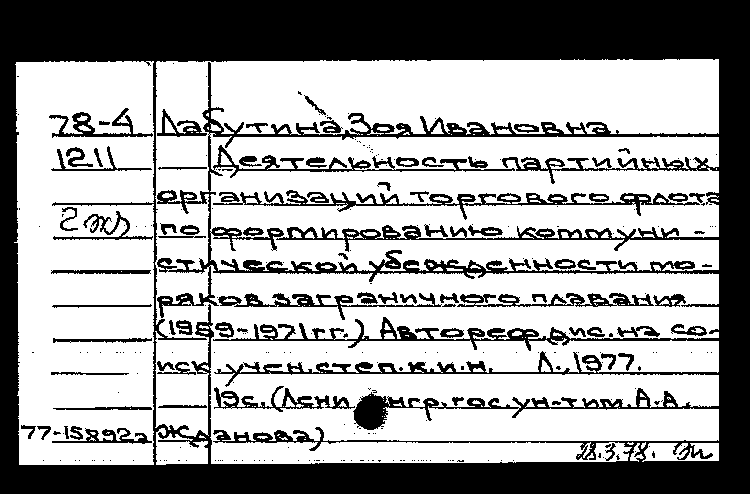 78-4 Лабутина, Зоя Ивановна.
1211 Деятельность партийных
организаций торгового флота
2 экз по формированию коммуни-
стической убежденности мо-
ряков заграничного плавания
(1959-1971гг.). Автореф.дис.на со-
иск.учен.степ.к.и.н. Л., 1977.
19с. (Ленингр.гос.ун-т им. А.А.
77-15892а Жданова)
28.3.78.